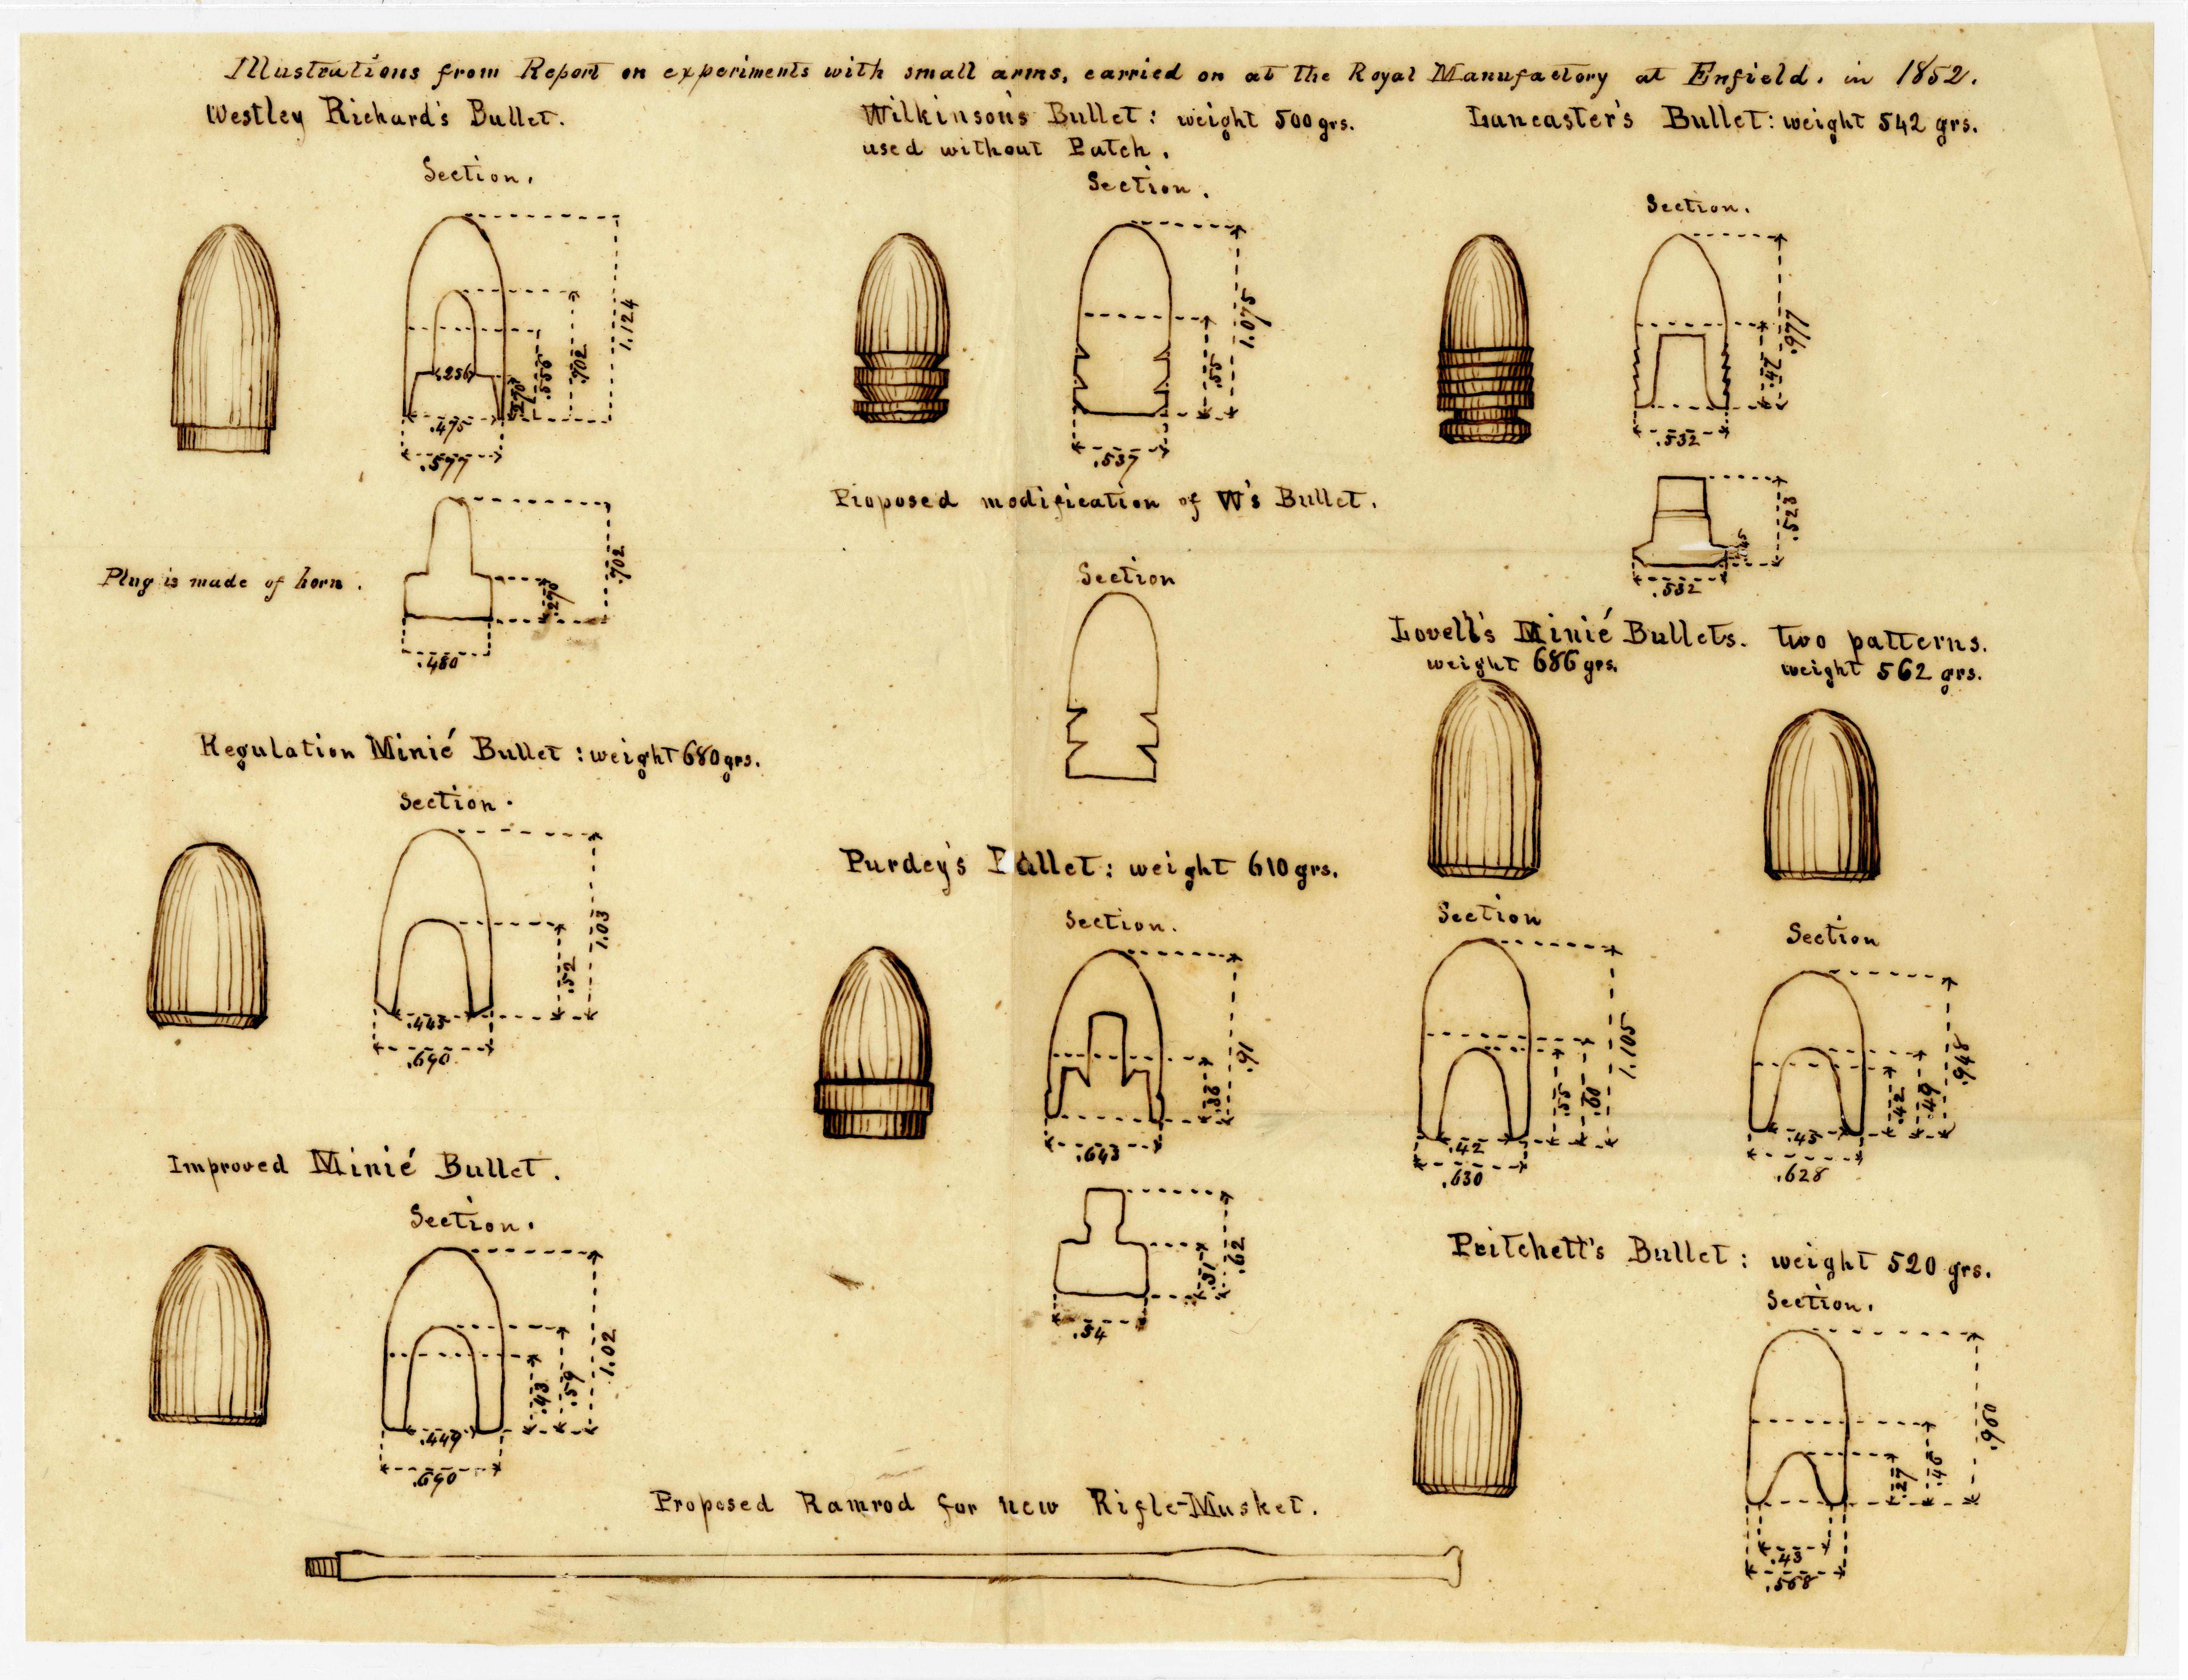 Illustrations from Report on experiments with small arms, carried on at the Royal Manufactory at Enfield. in 1852.
Westley Richard's Bullet.
Section.
1.124
.702
.556
.270
.256
.475
.577
Plug is made of horn.
.702
.270
.480
Regulation Minié Bullet : weight 680 grs.
Section.
1.03
.52
.445
.690
Improved Minié Bullet.
Section.
1.02
.59
.43
.449
.690
Wilkinson's Bullet : weight 500 grs.
used without Patch.
Section.
1.075
.55
.537
Proposed modification of W's Bullet.
Section
Purdey's Bullet : weight 610 grs.
Section.
.91
.36
.643
.62
.31
.54
Lancaster's Bullet : weight 542 grs.
Section.
.977
.47
.532
.523
.532
Lovell's Minié Bullets. two patterns.
weight 686 grs.
weight 562 grs.
Section
1.105
.60
.55
.42
.630
Section
.948
.49
.42
.45
.628
Pritchett's Bullet : weight 520 grs.
Section.
.960
.46
.27
.43
.568
Proposed Ramrod for new Rifle-Musket.